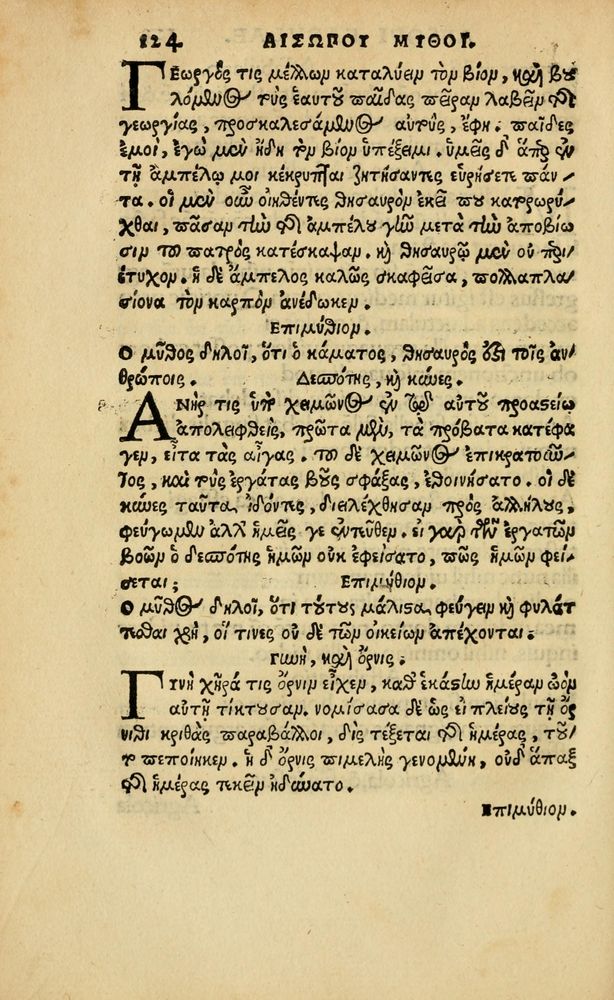 124 ΑΙΣΩΠΟΥ ΜΥΘΟΙ.
Γεωργός τις μέλλων καταλύειν τὸν βίον, καὶ βου
λόμενος τοὺς ἑαυτοῦ παῖδας πεῖραν λαβεῖν τῆς
γεωργίας, προσκαλεσάμενος αὐτοὺς, ἔφη. παῖδες
ἐμοὶ, ἐγὼ μὲν ἤδη τοῦ βίου ὑπέξειμι. ὑμεῖς δ' ἅπερ ἐν
τῇ ἀμπέλῳ μοι κέκρυπται ζητήσαντες εὑρήσετε πάν/
τα. οἱ μὲν οὖν οἰηθέντες θησαυρὸν ἐκεῖ που κατορωρύ/
χθαι, πᾶσαν τὴν τῆς ἀμπέλου γῆν μετὰ τὴν ἀποβίω
σιν τοῦ πατρὸς κατέσκαψαν. καὶ θησαυρῷ μὲν οὐ περι/
έτυχον. ἡ δὲ ἄμπελος καλῶς σκαφεῖσα, πολλαπλα/
σίονα τὸν καρπὸν ἀνέδωκεν.
Ἐπιμύθιον.
Ὁ μῦθος δηλοῖ, ὅτι ὁ κάματος, θησαυρός ἐστι τοῖς ἀν/
θρώποις. Δεσπότης, καὶ κύνες.
Ἀνήρ τις ὑπὸ χειμῶνος ἐν τῷ αὐτοῦ προαστείῳ
ἀπολειφθεὶς, πρῶτα μὲν, τὰ πρόβατα κατέφα
γεν, εἶτα τὰς αἶγας. τοῦ δὲ χειμῶνος ἐπικρατοῦν/
τος, καὶ τοὺς ἐργάτας βοῦς σφάξας, ἐθοινήσατο. οἱ δὲ
κύνες ταῦτα ἰδόντες, διελέχθησαν πρὸς ἀλλήλους,
φεύγωμεν ἀλλ' ἡμεῖς γε ἐντεῦθεν. εἰ γὰρ τῶν ἐργατῶν
βοῶν ὁ δεσπότης ἡμῶν οὐκ ἐφείσατο, πῶς ἡμῶν φεί/
σεται; Ἐπιμύθιον.
Ὁ μῦθος δηλοῖ, ὅτι τούτους μάλιστα φεύγειν καὶ φυλάτ
τεσθαι χρὴ, οἵ τινες οὐδὲ τῶν οἰκείων ἀπέχονται.
Γυνὴ, καὶ ὄρνις.
Γυνὴ χήρα τις ὄρνιν εἶχεν, καθ' ἑκάστην ἡμέραν ὠὸν
αὐτῇ τίκτουσαν. νομίσασα δὲ ὡς εἰ πλείους τῇ ὄρ
νιθι κριθὰς παραβάλλοι, δὶς τέξεται τῆς ἡμέρας, τοῦ/
το πεποίηκεν. ἡ δ' ὄρνις πιμελὴς γενομένη, οὐδ' ἅπαξ
τῆς ἡμέρας τεκεῖν ἠδύνατο.
Ἐπιμύθιον.